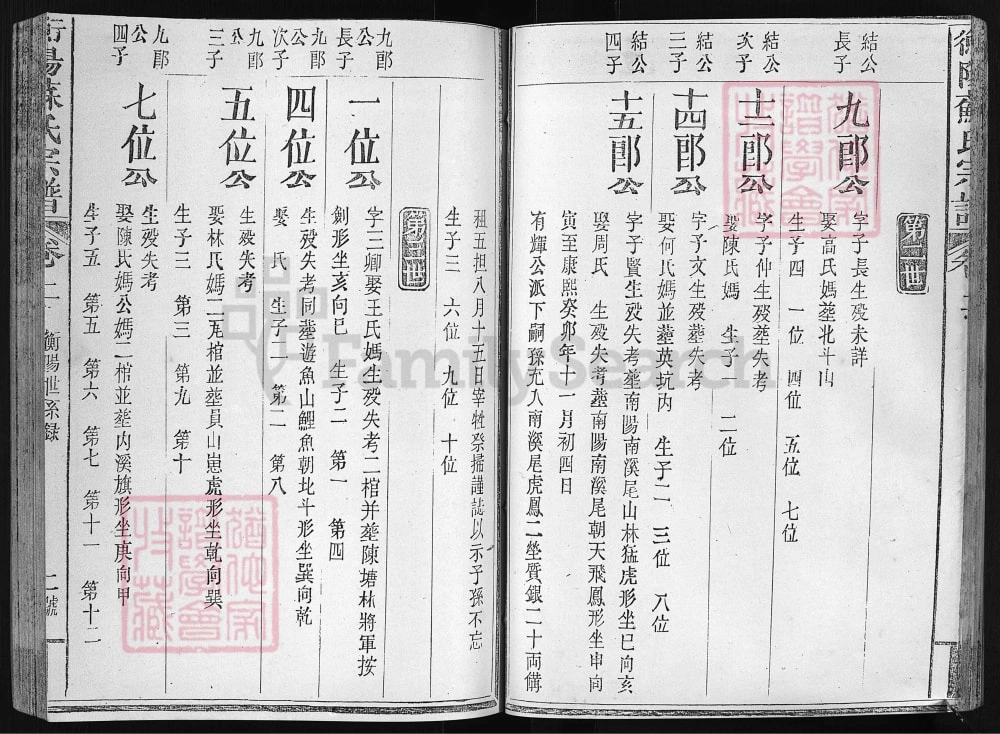 衡陽蘇氏宗譜
第二世
結公長子
九郎公
字子長生歿未詳
娶高氏媽葬北斗山
生子四 一位 四位 五位 七位
結公次子
十二郎公
字子仲生歿葬失考
娶陳氏媽 生子一 二位
結公三子
十四郎公
字子文生歿葬失考
娶何氏媽並葬英坑内 生子二 三位 八位
結公四子
十五郎公
字子賢生歿失考葬南陽南溪尾山林猛虎形坐巳向亥
娶周氏 生歿失考葬南陽南溪尾朝天飛鳳形坐申向
寅至康熙癸卯年十一月初四日
有輝公派下嗣孫充八南溪尾虎鳳二塋質銀二十両備
祖五担八月十五日宰牲祭掃謹誌以示子孫不忘
生子三 六位 九位 十位
第三世
九郎公長子
一位公
字三卿娶王氏媽生歿失考二棺并葬陳塘林將軍按
劍形坐亥向巳 生子二 第一 第四
九郎公次子
四位公
生歿失考同葬遊魚山鯉魚朝北斗形坐巽向乾
娶 氏 生子二 第二 第八
九郎公三子
五位公
生歿失考
娶林氏媽一二瓦棺並葬員山崽虎形坐乾向巽
生子三 第三 第九 第十
九郎公四子
七位公
生歿失考
娶陳氏媽公媽二棺並葬内溪旗形坐庚向甲
生子五 第五 第六 第七 第十一 第十二
衡陽蘇氏宗譜 卷之二 衡陽世系録 二號
FamilySearch